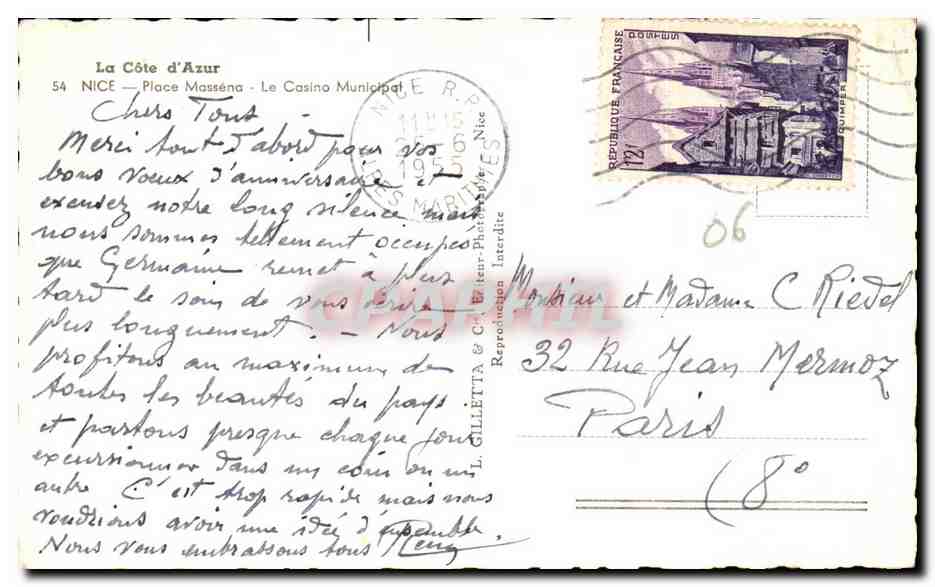 La Côte d'Azur
54 NICE — Place Masséna - Le Casino Municipal
Chers Tous
Merci tout d'abord pour vos
bons voeux d'anniversaire et
excusez notre long silence mais
nous sommes tellement occupés
que Germaine remet à plus
tard le soin de vous écrire
plus longuement. - Nous
profitons au maximum de
toutes les beautés du pays
et partons presque chaque jour
excursionner dans un coin ou un
autre C'est trop rapide mais nous
voudrions avoir une idée d'ensemble
Nous vous embrassons tous
L. GILLETTA & Cie Editeur-Photographe, Nice
Reproduction Interdite
NICE R.P.
11H15
6
1955
ALPES MARITIMES
REPUBLIQUE FRANÇAISE
POSTES
12f
QUIMPER
06
Monsieur et Madame C Riedel
32 Rue Jean Mermoz
Paris
(8°
CPARAMIL